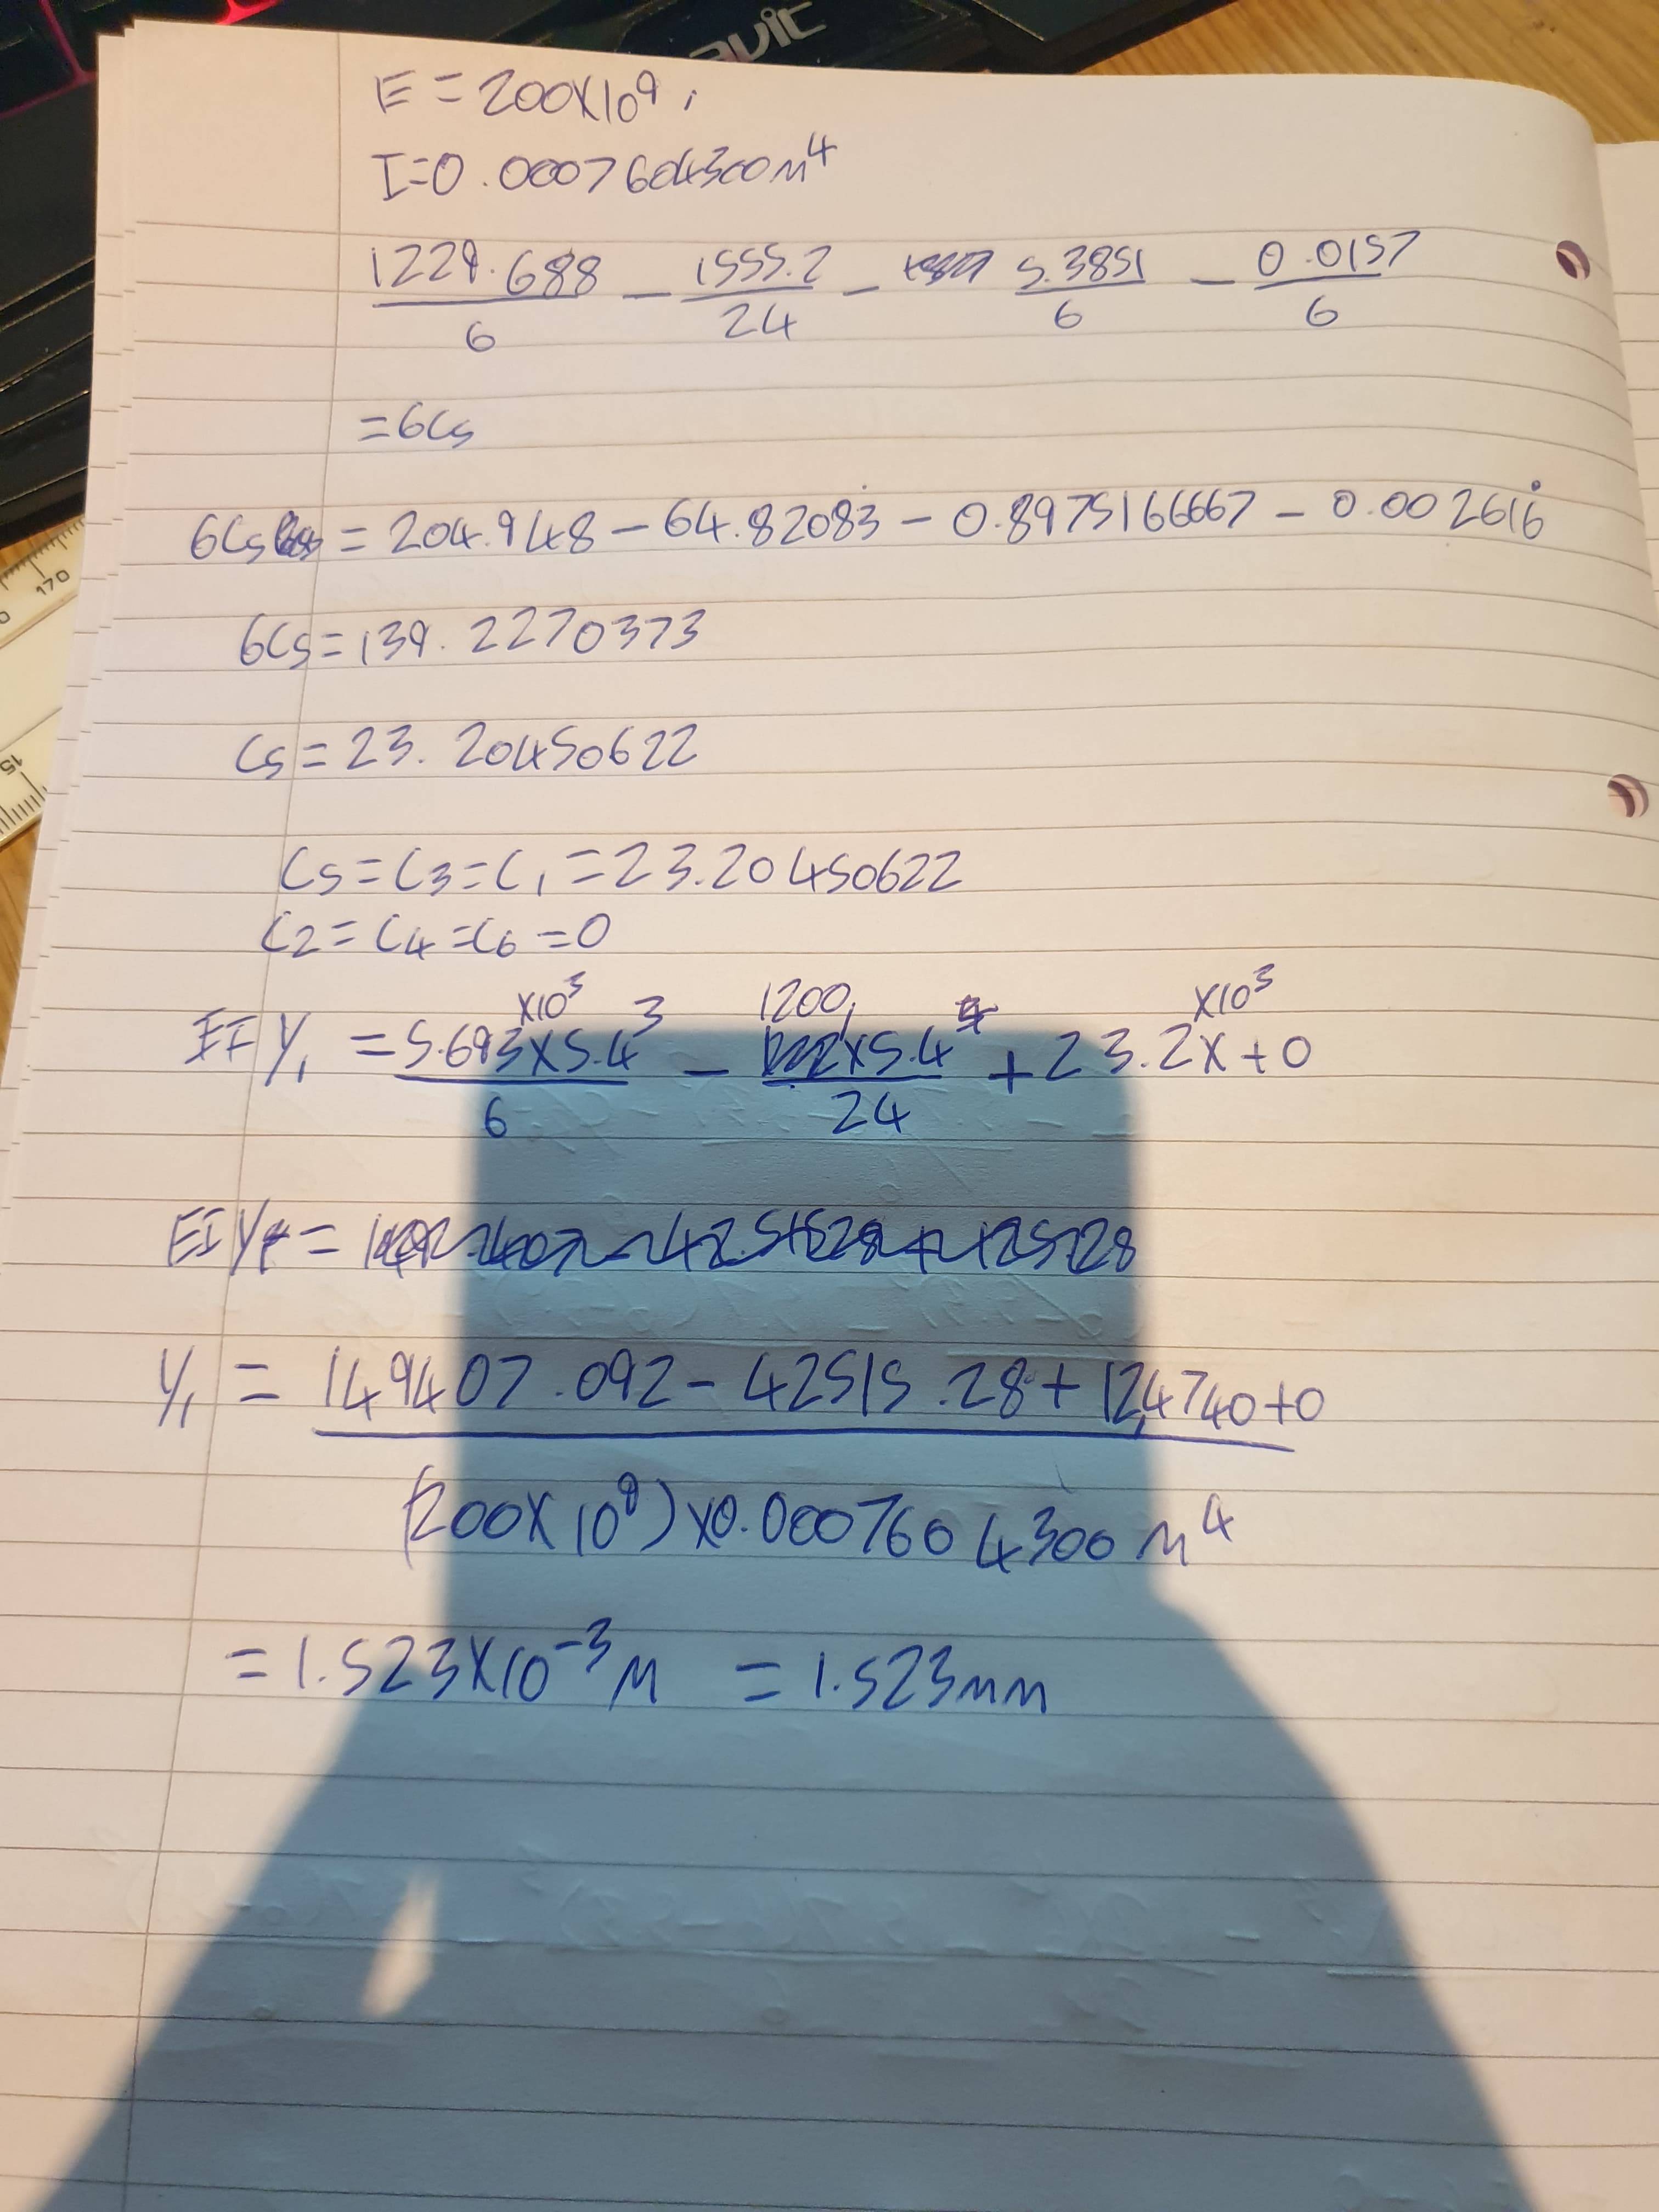 avit
E = 200x10⁹,
I=0.0007604300m⁴
1229.688/6 - 1555.2/24 - 5.3851/6 - 0.0157/6
=6C₅
6C₅ = 204.948 - 64.82083̇ - 0.8975166667 - 0.002616̇
6C₅=139.2270373
C₅=23.20450622
C₅=C₃=C₁=23.20450622
C₂=C₄=C₆=0
EI Y₁ = 5.693x10³x5.4³/6 - 1200x5.4⁴/24 + 23.2x10³x+0
EIY =
Y₁ = 149407.092 - 42515.28 + 124740+0
(200x10⁹)x0.0007604300m⁴
=1.523x10⁻³m =1.523mm
170
15